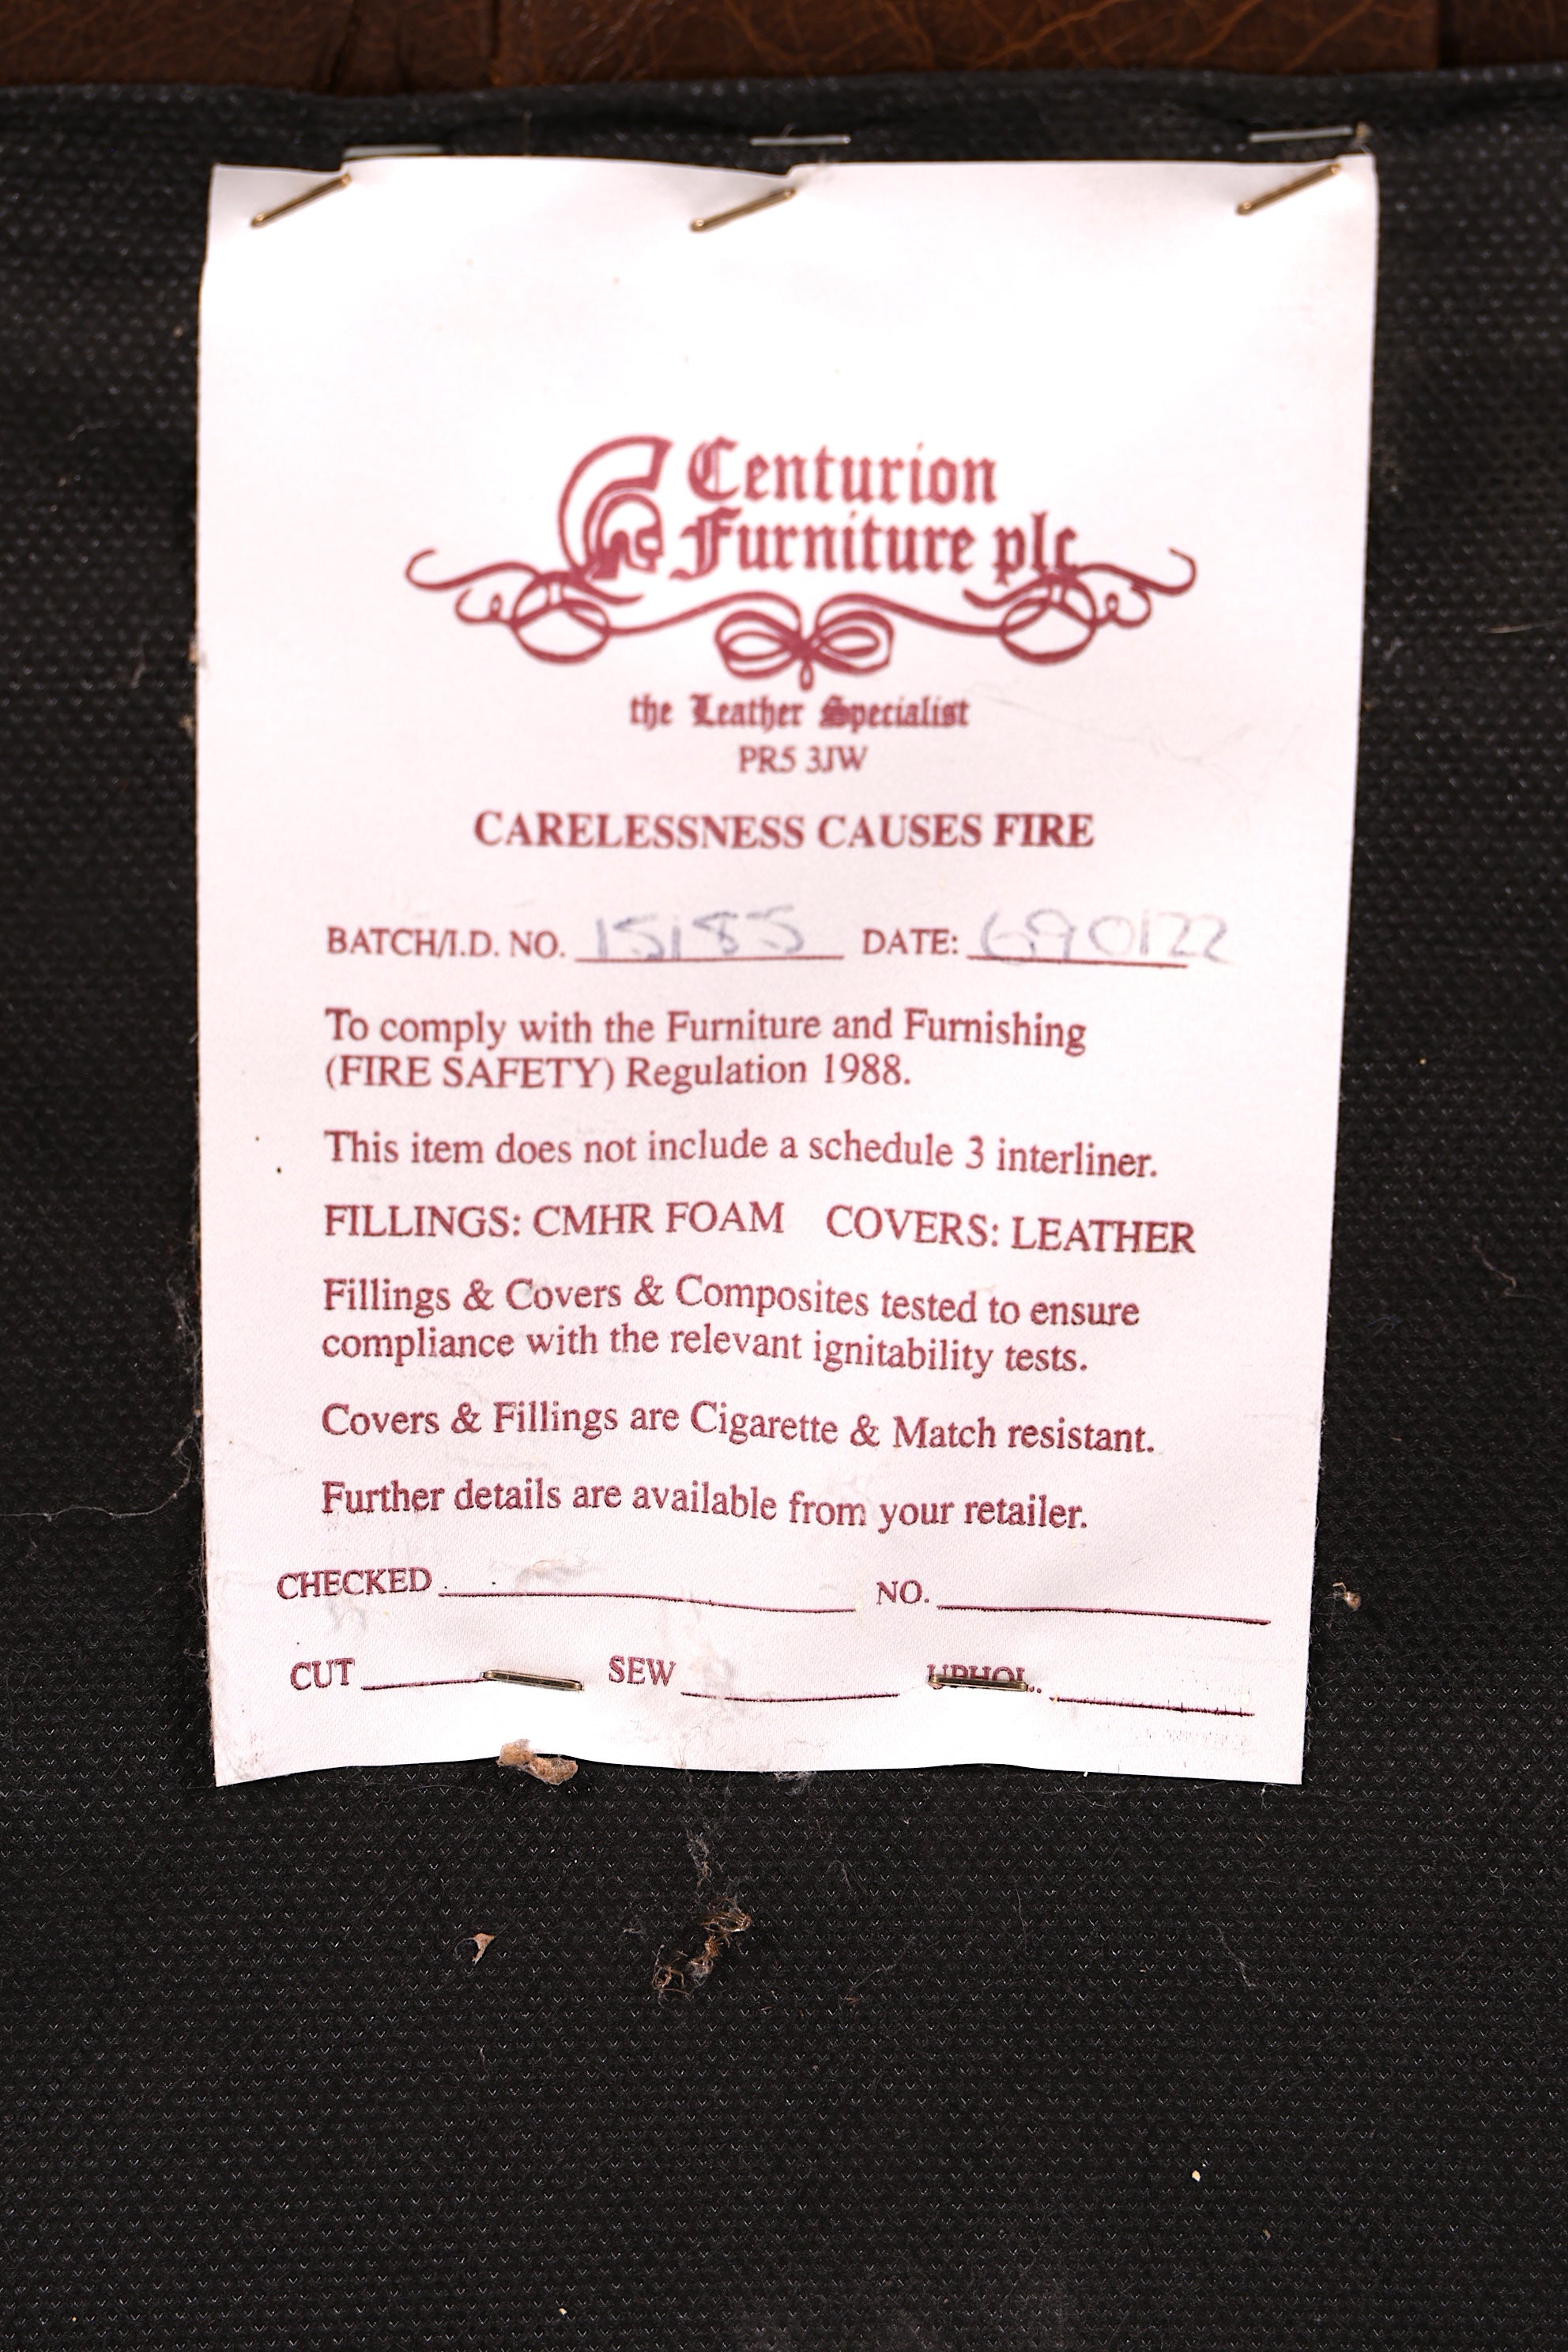 Centurion
Furniture plc
the Leather Specialist
PR5 3JW
CARELESSNESS CAUSES FIRE
BATCH/I.D. NO. 15185 DATE: 690122
To comply with the Furniture and Furnishing
(FIRE SAFETY) Regulation 1988.
This item does not include a schedule 3 interliner.
FILLINGS: CMHR FOAM COVERS: LEATHER
Fillings & Covers & Composites tested to ensure
compliance with the relevant ignitability tests.
Covers & Fillings are Cigarette & Match resistant.
Further details are available from your retailer.
CHECKED NO.
CUT SEW UPHOL.